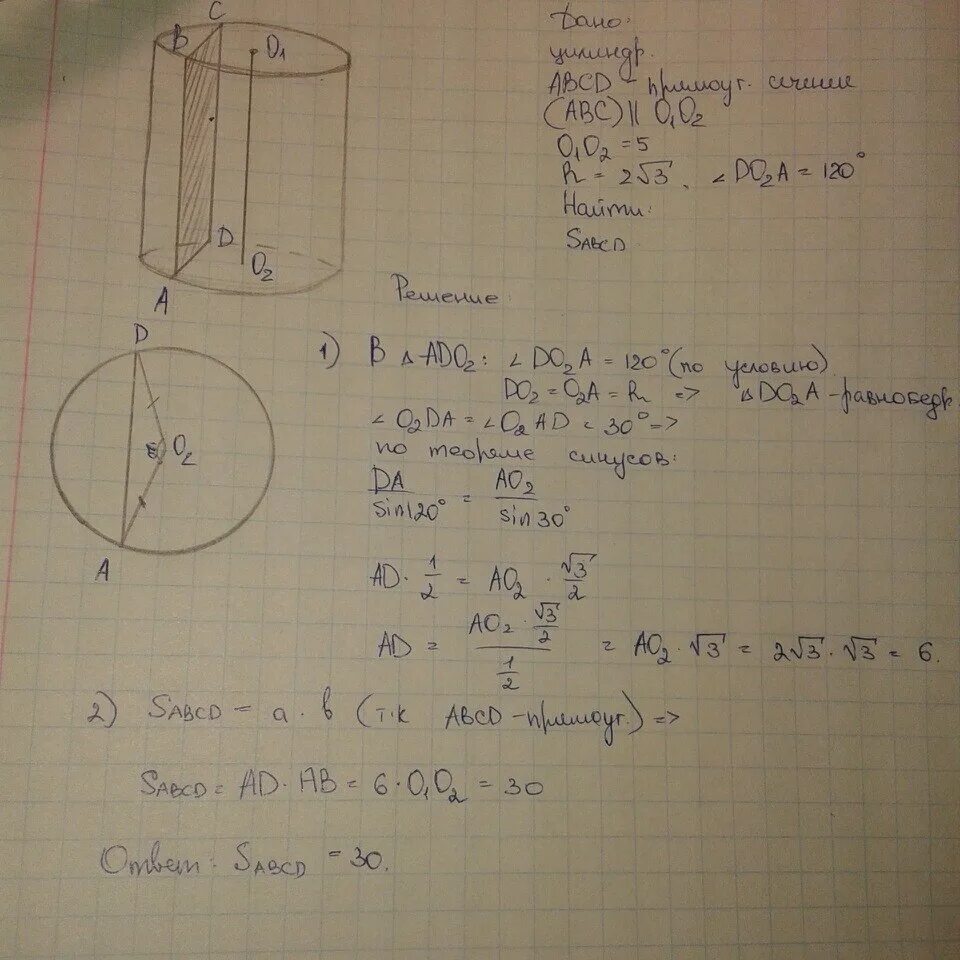 C
B
O₁
D
O₂
A
Дано:
цилиндр.
ABCD - прямоуг. сечение
(ABC) || O₁O₂
O₁O₂ = 5
R = 2√3, ∠DO₂A = 120°
Найти:
SABCD
Решение:
D
O₂
A
1) В △ADO₂: ∠DO₂A = 120° (по условию)
DO₂ = O₂A = R => △DO₂A - равнобедр.
∠O₂DA = ∠O₂AD = 30° =>
по теореме синусов:
DA/sin120° = AO₂/sin30°
AD · 1/2 = AO₂ · √3/2
AD = (AO₂ · √3/2)/(1/2) = AO₂ · √3 = 2√3 · √3 = 6.
2) SABCD = a · b (т.к ABCD - прямоуг.) =>
SABCD = AD · AB = 6 · O₁O₂ = 30
Ответ: SABCD = 30.